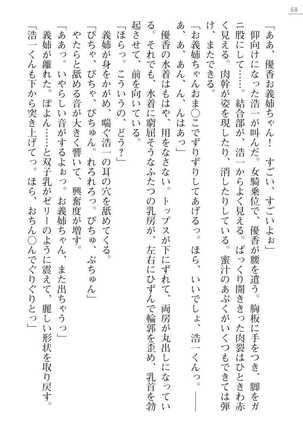 68
「ああ、優香お義姉ちゃん！　すごい、すごいよぉ」
仰向けになった浩一が叫んだ。女騎乗位で、優香が腰を遣う。胸板に手をつき、脚をガ
ニ股にして――結合部が、浩一からよく見える。ぱっくり開ききった肉裂はひときわ赤
く見える。肉幹が姿を現したり、消したりしている。蜜汁のあぶくがいくつもできては弾
け、またできる。
「お義姉ちゃんおま〇こでずりずりしてあげるっ。ほら、いいでしょ、浩一くんっ。――
ああ、あん、ん、んはあっ」
優香の水着はもはや、用をなさない。トップスが下にずれて、両房が丸出しになってい
る。それでも、水着に窮屈そうなふたつの乳房が、左右にひずんで輪郭を歪め、乳首を勃
起させて、前を向いている。
「ほらっ。こういうの、どう？」
義姉が身をかがめ、喘ぐ浩一の耳の穴を舐めてくる。
「ぴちゃ、ぴちゃ、ぴちゅん。れろれろっ。ぴちゅ、ぷちゅん」
やたらと舐める音が大きく響いて、興奮度が増す。
「ああっ。いやらしい音がするよぉっ。お義姉ちゃん、また出ちゃうっ」
義姉が離れた。ぽよん――と双子乳がゼリーのように震えて、麗しい形状を取り戻す。
「浩一くんも下から突き上げてっ。ほら、おちん〇んでぐりぐりとっ」